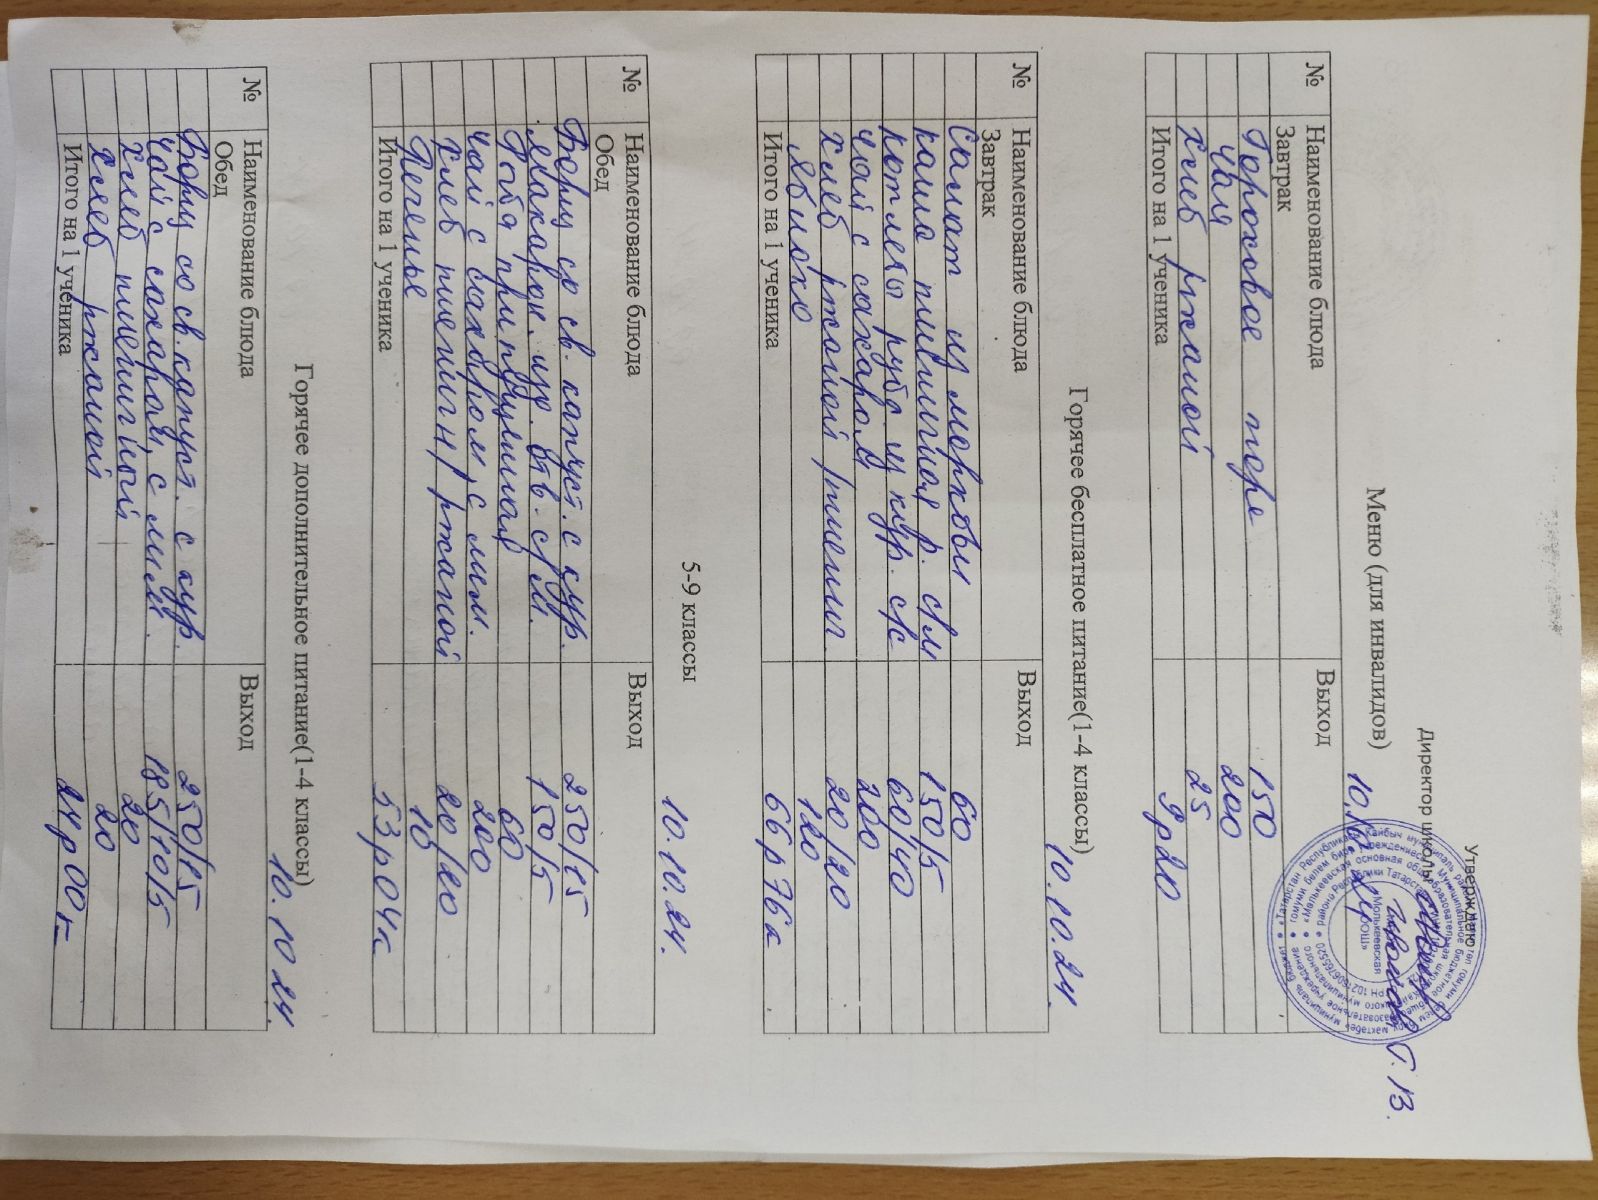 Утверждаю
Директор школы
Меню (для инвалидов) 10.10.24
№ Наименование блюда Выход
Завтрак
Гороховое пюре 150
чай 200
Хлеб ржаной 25
Итого на 1 ученика 9р20
Горячее бесплатное питание(1-4 классы) 10.10.24.
№ Наименование блюда Выход
Завтрак
Салат из моркови 60
каша пшеничная р. с/м 150/5
котлеты рубл. из кур. с/с 60/40
чай с сахаром 200
хлеб ржаной /пшенич. 20/20
Яблоко 120
Итого на 1 ученика 66р 76к
5-9 классы 10.10.24.
№ Наименование блюда Выход
Обед
Борщ со св. капуст. с кур. 250/15
Макарон. изд. отв. с/м. 150/5
припущенная 60
чай с сахаром, с лим. 200
Хлеб пшеничн/ ржаной 20/20
Печенье 10
Итого на 1 ученика 53р04к
Горячее дополнительное питание(1-4 классы) 10.10 24.
№ Наименование блюда Выход
Обед
Борщ со св. капуст. с кур. 250/15
чай с сахаром, с лим. 185/10/5
хлеб пшеничной 20
Хлеб ржаной 20
Итого на 1 ученика 24р00к